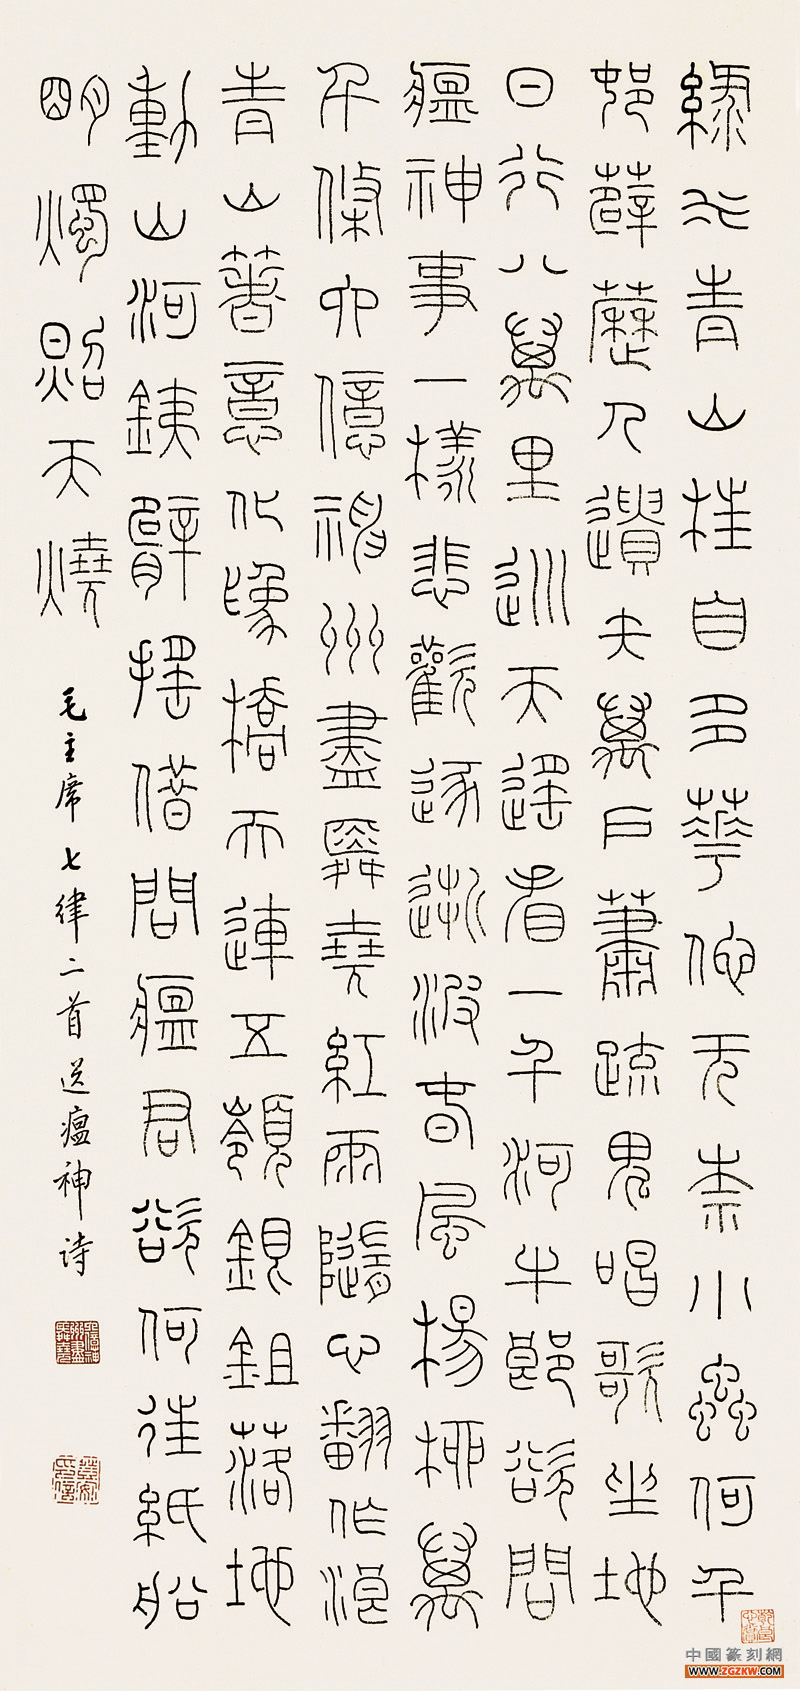 綠水青山枉自多華佗无奈小蟲何千
村薜荔人遺矢萬戶蕭疏鬼唱歌坐地
日行八萬里巡天遙看一千河牛郎欲問
瘟神事一樣悲歡逐逝波春風楊柳萬
千條六億神州盡舜堯紅雨隨心翻作浪
青山著意化為橋天連五嶺銀鉏落地
動山河鐵臂搖借問瘟君欲何往紙船
明燭照天燒
毛主席七律二首送瘟神诗
六億神州盡舜堯
中國篆刻網
WWW.ZGZKW.COM